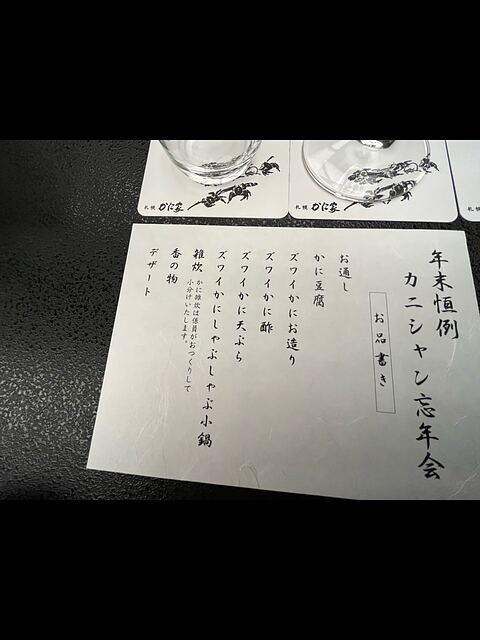 札幌 かに家
札幌 かに家
年末恒例
カニシャン忘年会
お品書き
お通し
かに豆腐
ズワイかにお造り
ズワイかに酢
ズワイかに天ぷら
ズワイかにしゃぶしゃぶ小鍋
雑炊 かに雑炊は係員がおつくりして
小分けいたします。
香の物
デザート